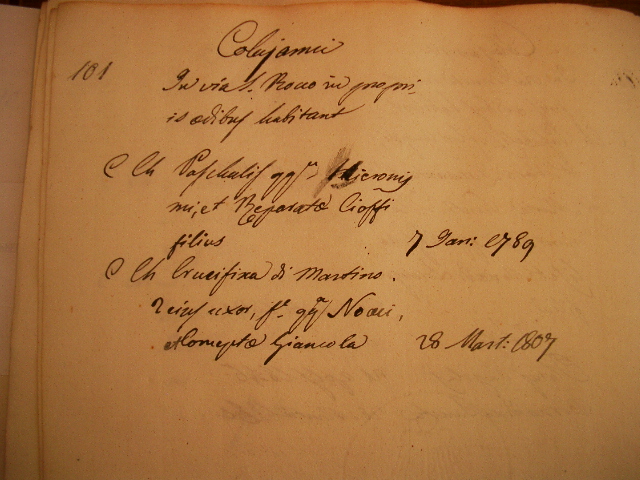 Colajanni
101
In via S. Roco in propri-
is ædibus habitant
C Ch Paschalis qq.m Hieronij
mi, et Reparatæ Cioffi
filius 7 Jan: 1789
C Ch Crucifixa di Martino.
ejus uxor, f.a qq.m
Giancola 28 Mart: 1807